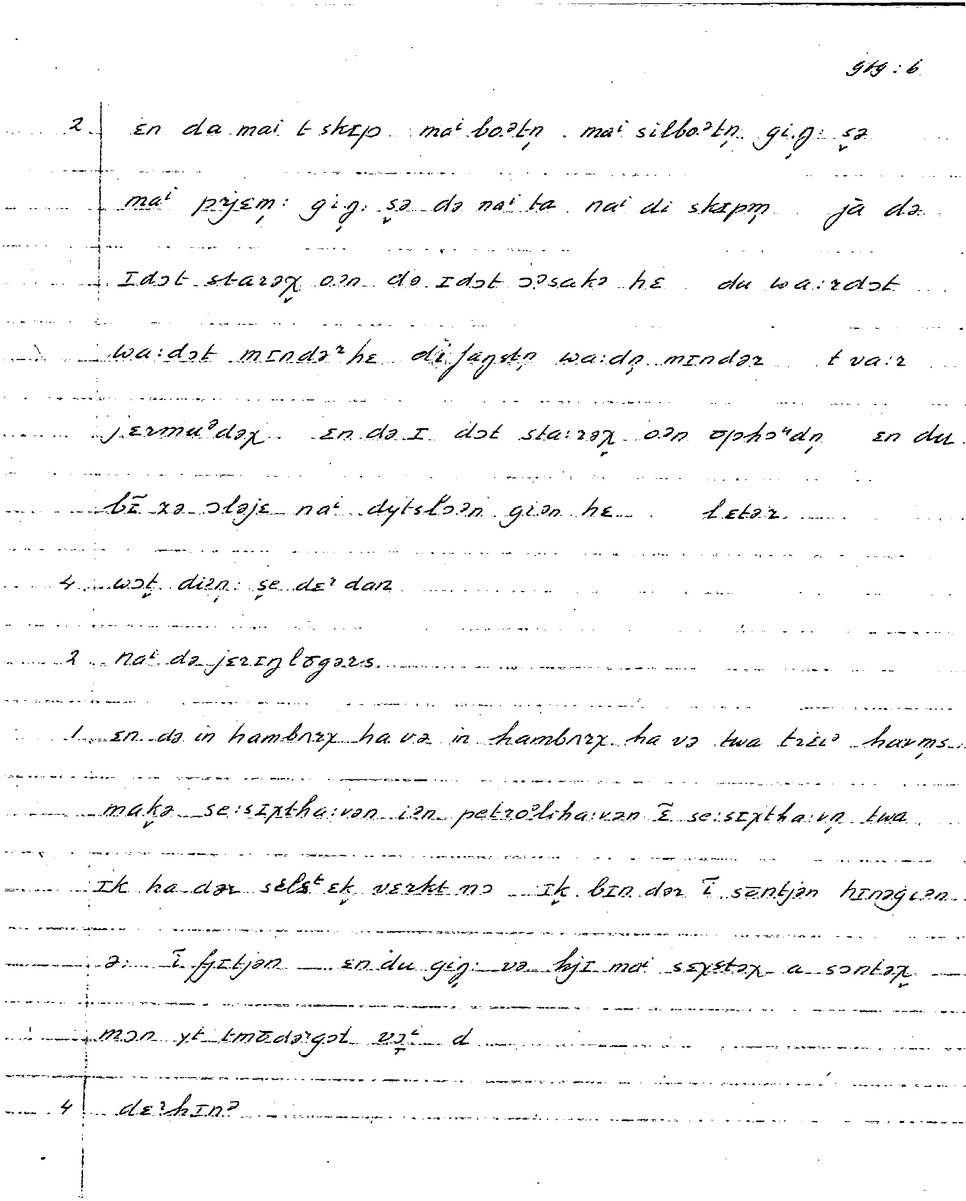 gtg : 6
2 ɛn da mai t skɪp maⁱ boᵊtn̩ . maⁱ silboᵊtn̩ giŋ̩ː s̬ə
maⁱ prjɛm̩ː giŋ̩ː s̬ə də naⁱ ta naⁱ di skɪpm̩ ja də
ɪdɔt starəχ oən də ɪdɔt ɔᵊsakə hɛ du waːrdɔt
waːdət mɪndəʳhɛ di jaŋstn̩ waːdn̩ mɪndər t vaːr
jɛrmuᵊdəχ ɛn də ɪ dɔt staːrəχ oən ophɔᵘdn̩ ɛn du
bĩ xə ɔləjɛ naⁱ dytslɔən giən hɛ lɛtər
4 wɔt diən̩ː se dɛʳ dan
2 naⁱ də jɛrɪŋlōgərs.
1 ɛn də in hambʌrχ ha və in hambʌrχ ha və twa triɛᵊ harm̩s
makə seːsɪχthaːvən iən petroᵊlihaːvən ĩ seːsɪχthaːvn̩ twa
ɪk ha dər sɛlstɛk vɛrkt nɔ ɪk bɪn dər ĩ sūntjən hɪnəgiən
əː ĩ fjɪtjən ɛn du giŋ̩ː və hjɪ maⁱ sɛχstəχ a sɔntəχ
mɔn yt tmūdərgət d
4 dɛʳhɪnᵊ